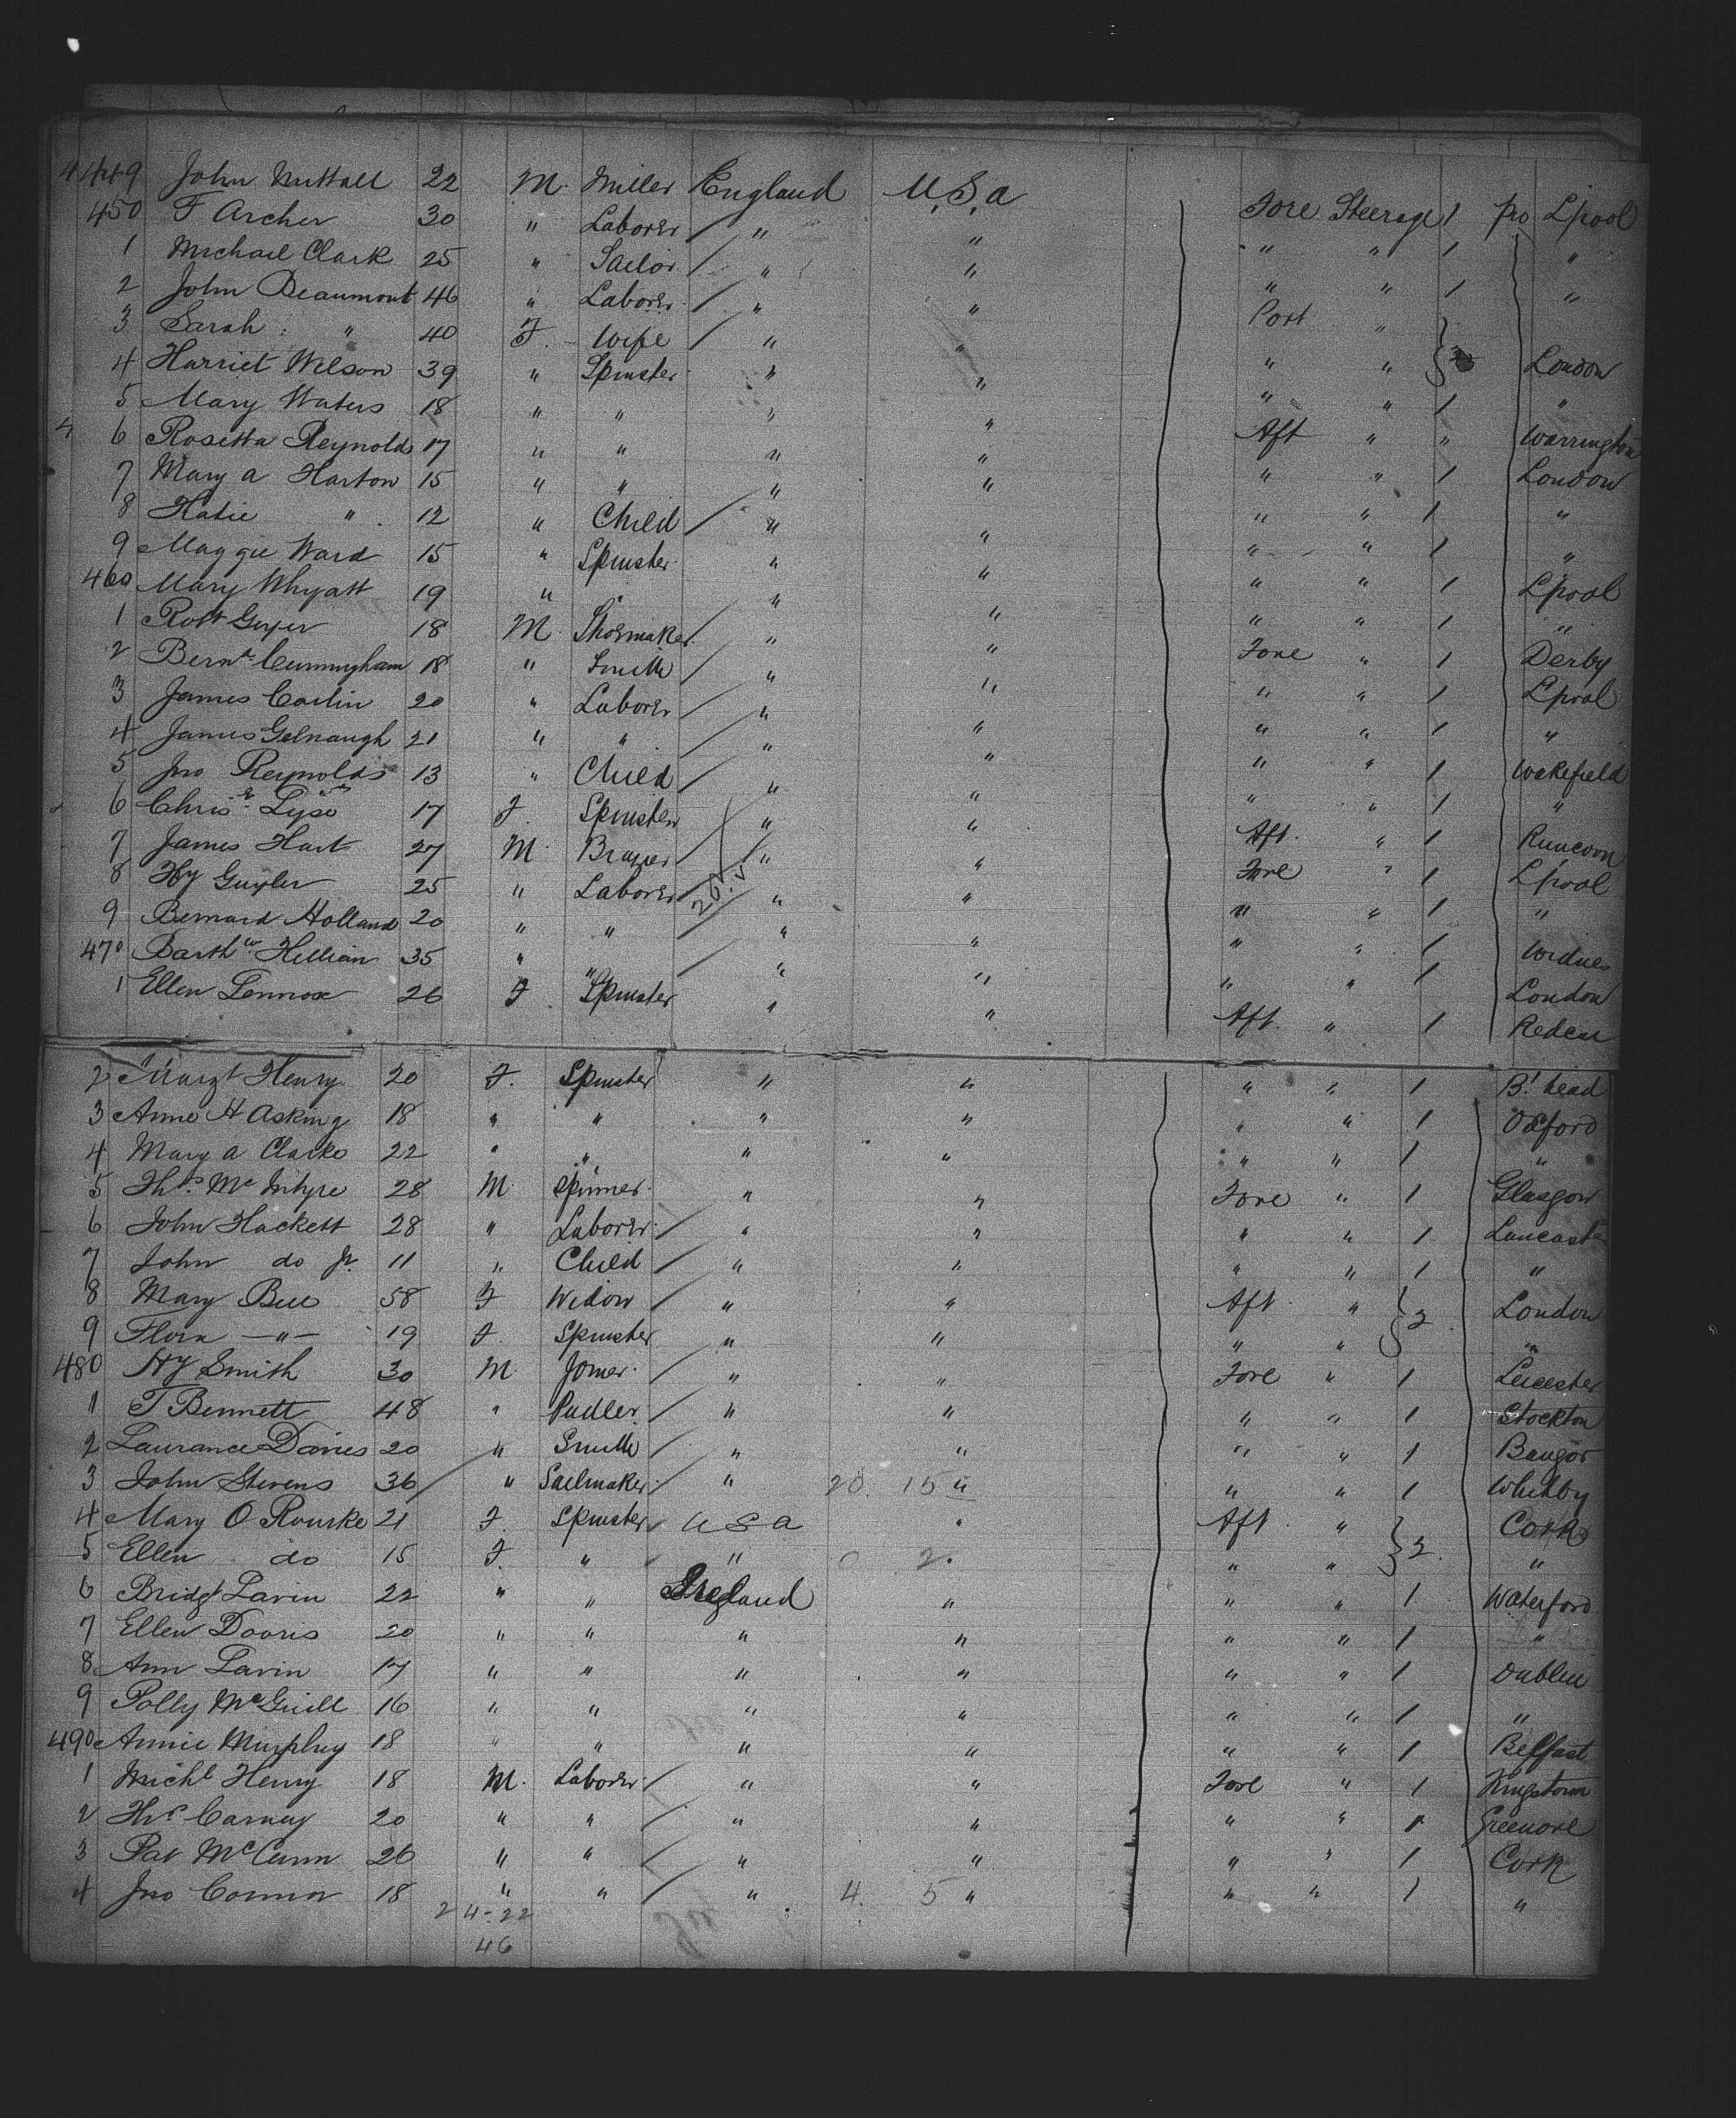 449 John Nuttall 22 M. Miller England U.S.a Fore Steerage 1 pro Lpool
450 F Archer 30 " Laborer " " " " 1 "
1 Michael Clark 25 " Sailor " " " " 1 "
2 John Beaumont 46 " Laborer " " Port "
3 Sarah " 40 F. Wife " " " " London
4 Harriet Wilson 39 " Spinster " " " " 1 "
5 Mary Waters 18 " " " " Aft " " Warrington
6 Rosetta Reynolds 17 " " " " " " 1 London
7 Mary a Harton 15 " " " " " " 1 "
8 Katie " 12 " Child " " " " 1 "
9 Maggie Ward 15 " Spinster " " " " 1 Lpool
460 Mary Whyatt 19 " " " " " " 1 "
1 Robt Guyer 18 M Shoemaker " " Fore " 1 Derby
2 Bernd Cunningham 18 " Smith " " " " 1 Lpool
3 James Carlin 20 " Laborer " " " " 1 "
4 James Gelnaugh 21 " " " " " " 1 Wakefield
5 Jno Reynolds 13 " Child " " " " 1 "
6 Chris 17 F. Spinster " " Aft " 1 Runcorn
7 James Hart 27 M Brazier " " Fore " 1 Lpool
8 Hy Guyler 25 " Laborer " " " " 1 "
9 Bernard Holland 20 " " " " " " 1 Widnes
470 Barthw Killian 35 " " " " " " 1 London
1 Ellen Lennox 26 F Spinster " " Aft " 1 Redcar
2 Margt Henry 20 F. Spinster " " " " 1 B'head
3 Anne H Asking 18 " " " " " " 1 Oxford
4 Mary a Clarke 22 " " " " " " 1 "
5 Ths Mc Intyre 28 M. Spinner " " Fore " 1 Glasgow
6 John Hackett 28 " Laborer " " " " 1 Lancaster
7 John do Jr. 11 " Child " " " " 1 "
8 Mary Bell 58 F Widow " " Aft " 2 London
9 Flora —"— 19 F. Spinster " " " " "
480 Hy Smith 30 M. Joiner " " Fore " 1 Leicester
1 T Bennett 48 " Pudler " " " " 1 Stockton
2 Laurance Davies 20 " Smith " " " " 1 Bangor
3 John Stevens 36 " Sailmaker " 20. 15 " " " 1 Whitby
4 Mary O Rourke 21 F. Spinster U S a " Aft " 2 Cork
5 Ellen do 15 F. " " 0 2 " " "
6 Bridgt Lavin 22 " " Ireland " " " 1 Waterford
7 Ellen Davis 20 " " " " " " 1 "
8 Ann Lavin 17 " " " " " " 1 Dublin
9 Polly McGuill 16 " " " " " " 1 "
490 Annie Murphy 18 " " " " " " 1 Belfast
1 Michl Henry 18 M. Laborer " " Fore " 1 Kingstown
2 Ths Carney 20 " " " " " " 1 Greenore
3 Pat McCann 26 " " " " " " 1 Cork
4 Jno Connor 18 " " " 4. 5 " " " 1 "
2 4-22
46